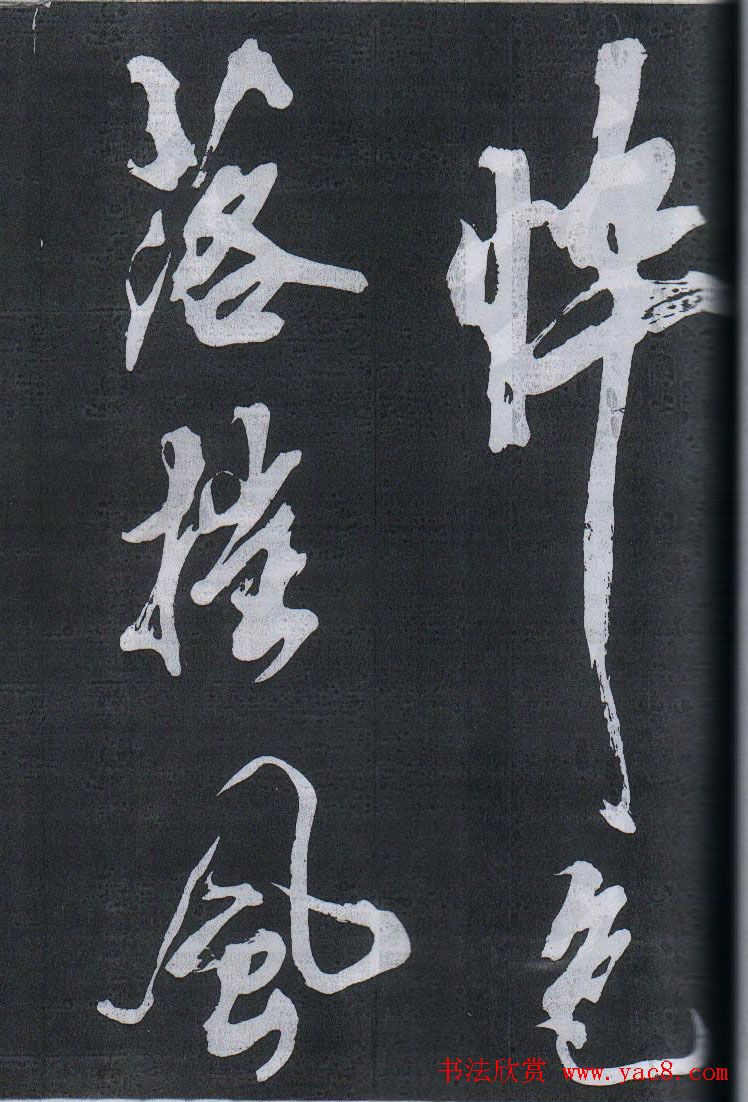 悴色
落摧風
书法欣赏 www.yac8.com